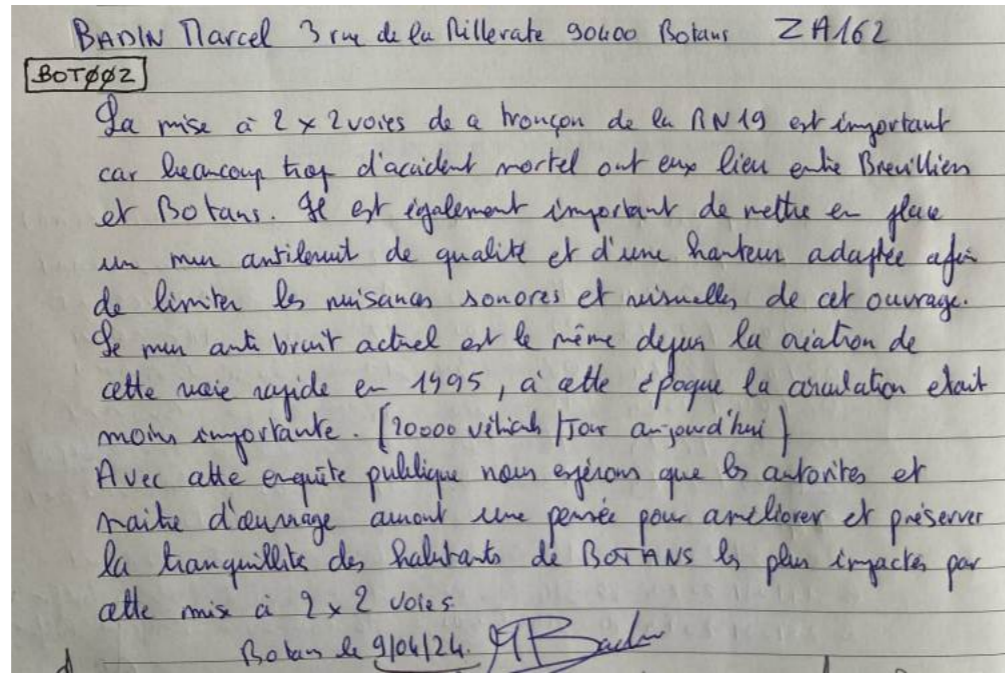 BADIN Marcel 3 rue de la Millerate 90400 Botans ZA162
BOTØØ2
La mise à 2 x 2 voies de ce tronçon de la RN19 est important
car beaucoup trop d'accident mortel ont eux lieu entre Brevilliers
et Botans. Il est également important de mettre en place
un mur antibruit de qualité et d'une hauteur adaptée afin
de limiter les nuisances sonores et visuelles de cet ouvrage.
Le mur anti bruit actuel est le même depuis la création de
cette voie rapide en 1995, à cette époque la circulation etait
moins importante. (20000 véhicules/Jour aujourd'hui)
Avec cette enquête publique nous espérons que les autorites et
maitre d'œuvrage auront une pensée pour améliorer et préserver
la tranquillité des habitants de BOTANS les plus impactés par
cette mise à 2 x 2 voies
Botans le 9/04/24. Badin